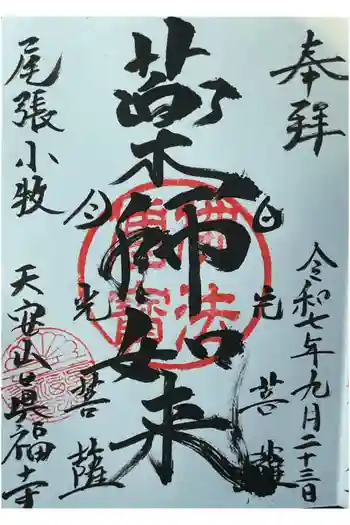 奉拝
令和七年九月二十三日
日光菩薩
薬師如来
月光菩薩
尾張小牧
天安山眞福寺
佛法
僧寶